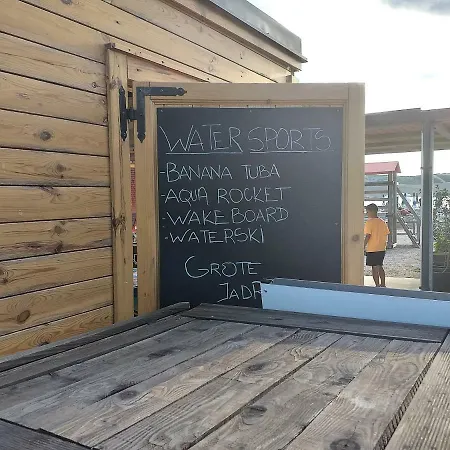 WATER SPORTS
-BANANA TUBA
-AQUA ROCKET
-WAKEBOARD
-WATERSKI
GROTE